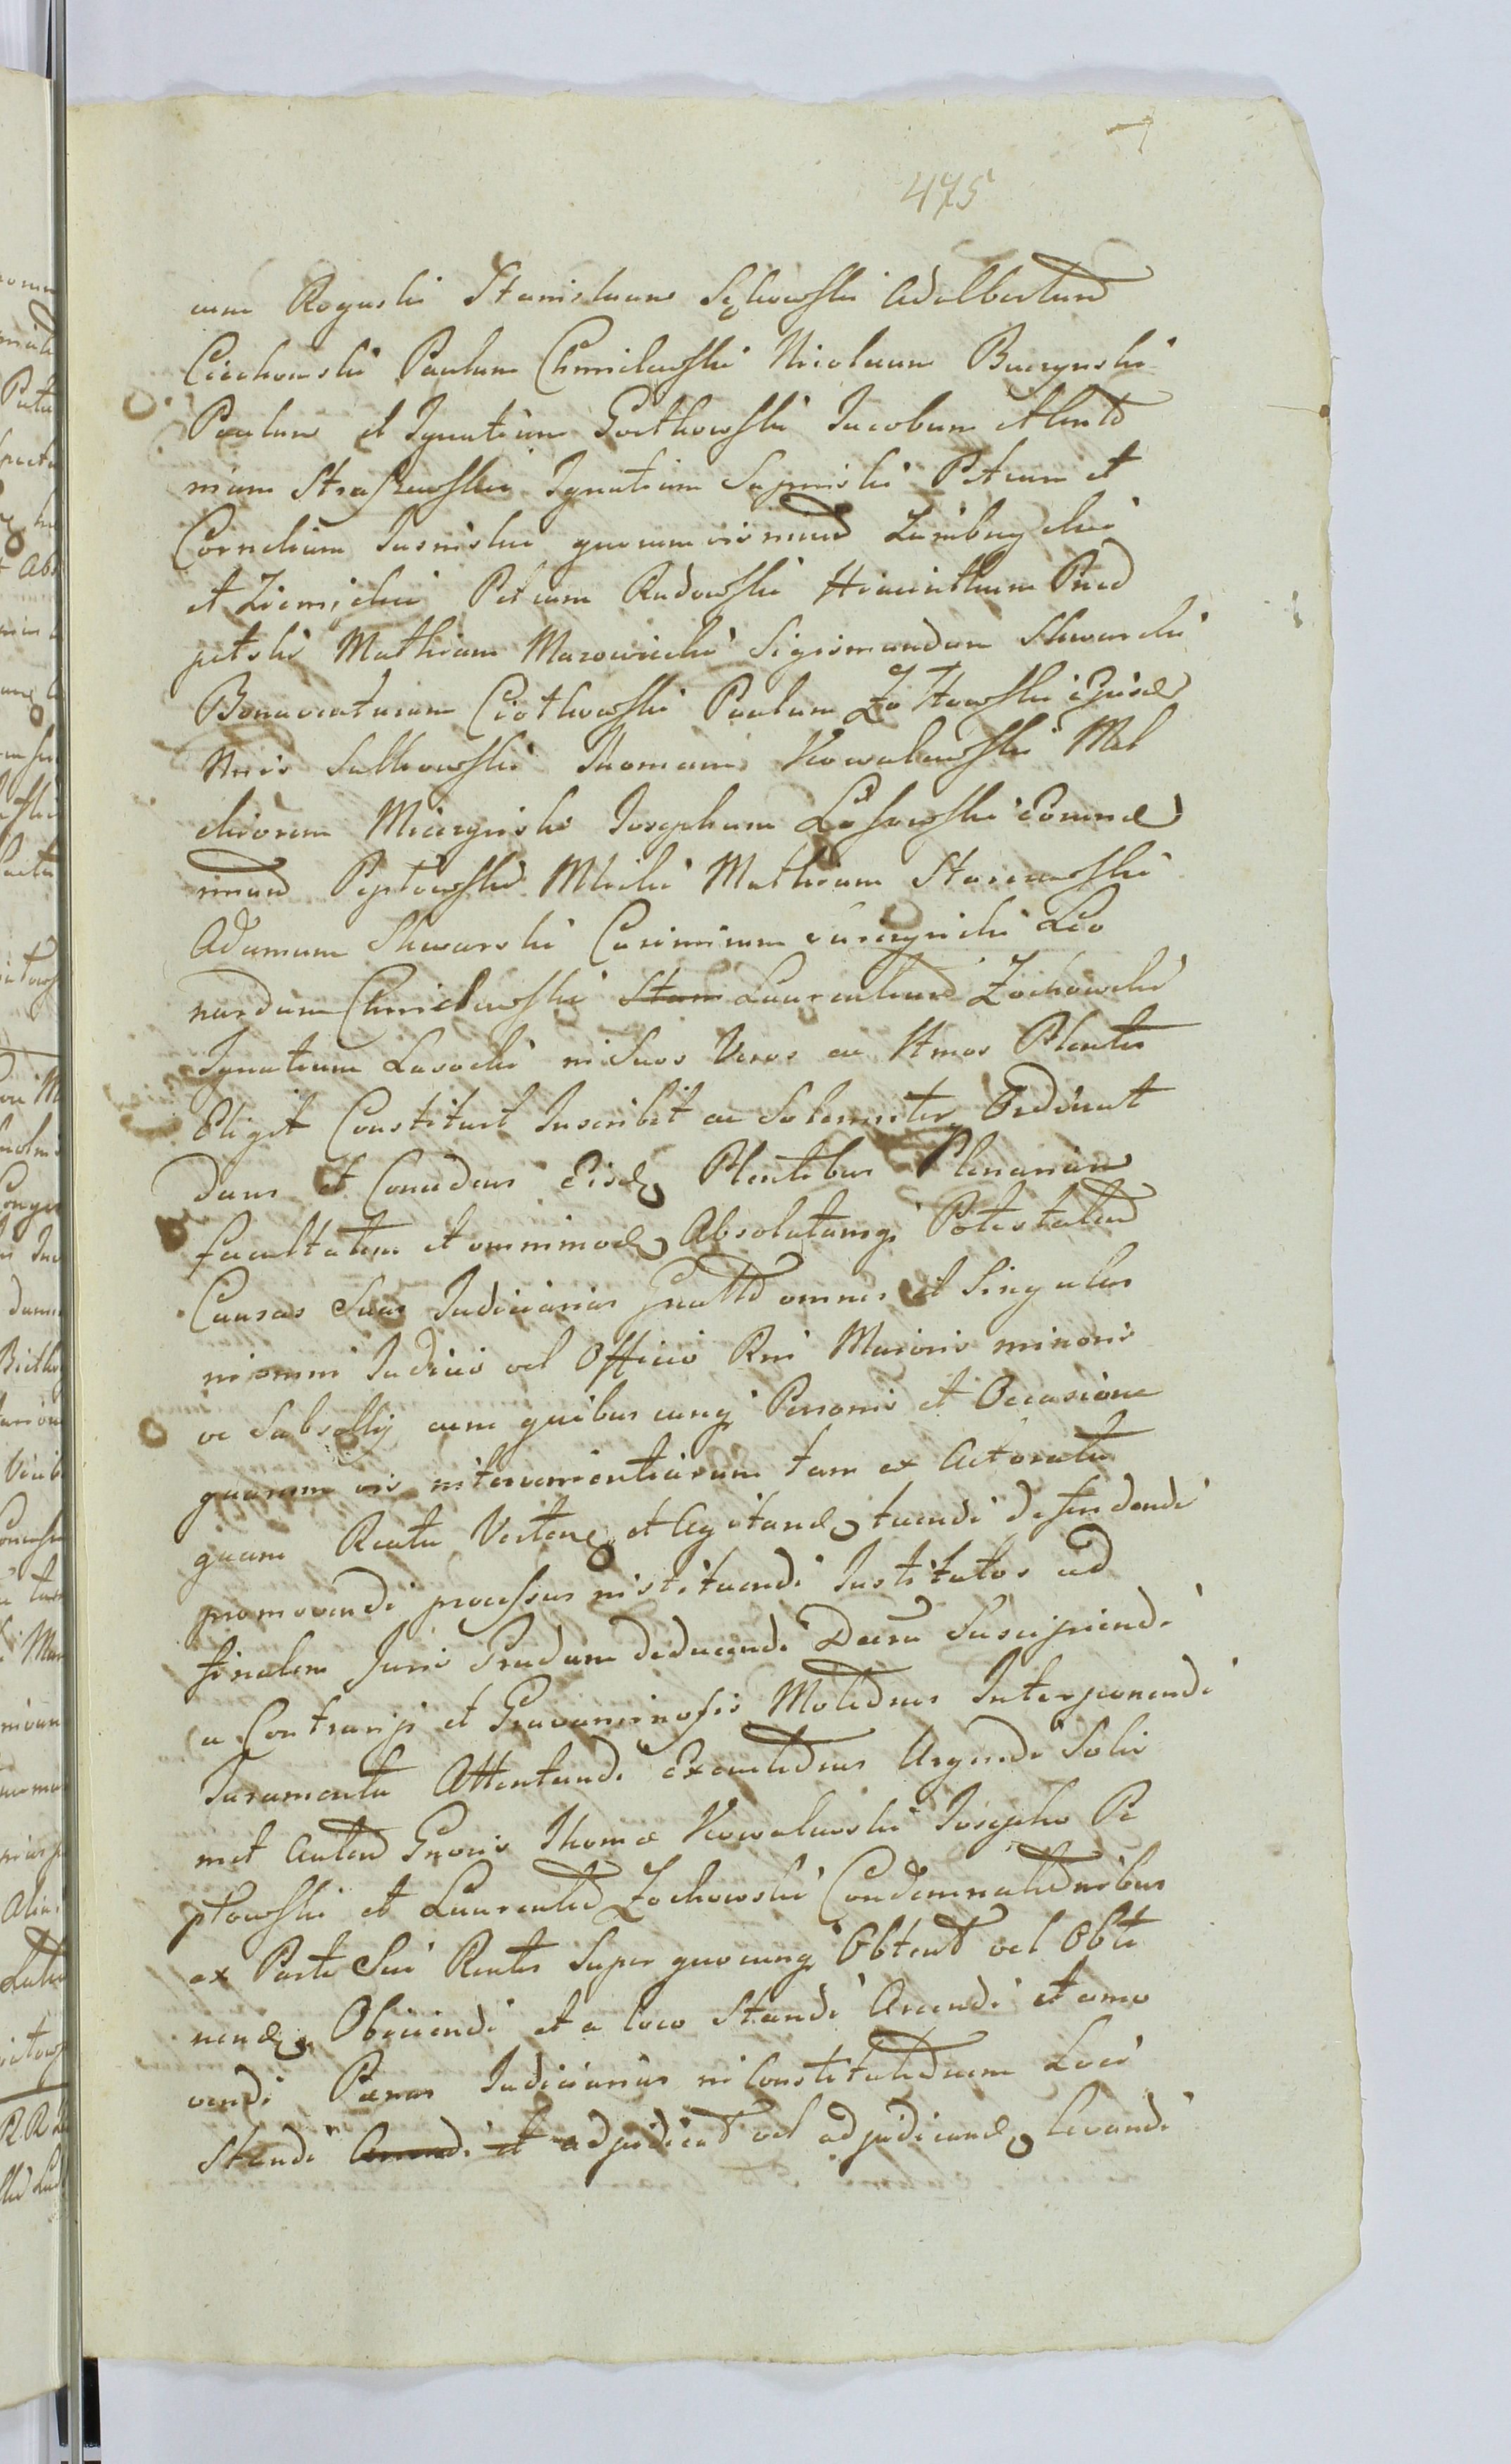 475
cum Roguski Stanislaum Sękowski Adalbertum
Ciechowski Paulum Chmielewski Nicolaum Buczynski
Paulum et Ignatium Gostkowski Jacobum et Anto
nium Straszewski Ignatium Supinski Petrum et
Cornelium Jasinskie quorumvis nimium Zambrzycki
et Ziemięcki Petrum Rudowski Hiacinthum Pred
petski Mathiam Mazowiecki Sigismundum Skwarski
Bonaventuram Ciotkowski Paulum Zołtowski ejusd
Nris Sutkowski Thomam Kowalewski Mel
chiorem Mierzynski Josephum Łosowski Comme
nimum Peptowski Mlicki Mathiam Starczewski
Adamum Skwarski Casimirum Leo
nardum Chmielewski Stan Laurentium Zochowski
Ignatium Lasocki in Suos Veros ac Ltmos Plentes
Eligit Constituit Inscribit ac Solemniter Ordinat
dans et Concedens Eisd Plentibus Plenariam
facultatem et omnimod Absolutamq Potestatem
Causas Suas Judiciarias gnalld omnes et Singulas
in omni Judicio vel Officio Rni Maioris minoris
ve Subsellij cum quibuscunq Personis et Occasione
quarumvis intervenientiarum tam ex Actoratu
quam Reatu Verten et Agitand tuendi defendendi
promovendi processus instituendi Institutos ad
finalem Juris Gradum deducendi Decra Suscipiendi
a Contrarijs et Gravaminosis Motednes Interponendi
Juramenta Attentandi Executednes Urgendi Solis
met Autem Gnosis Thomæ Kowalewski Josepho Pe
ptowski et Laurentio Zochowski Condemnatednibus
ex Parte Sui Rentis Super quocunq Obtent vel Obti
nend Obiiciendi et a loco Standi Arcendi et amo
vendi Pænas Judiciarias in Constitutednem Loci
Standi Arcendi et adjudicat vel adjudicand levandi